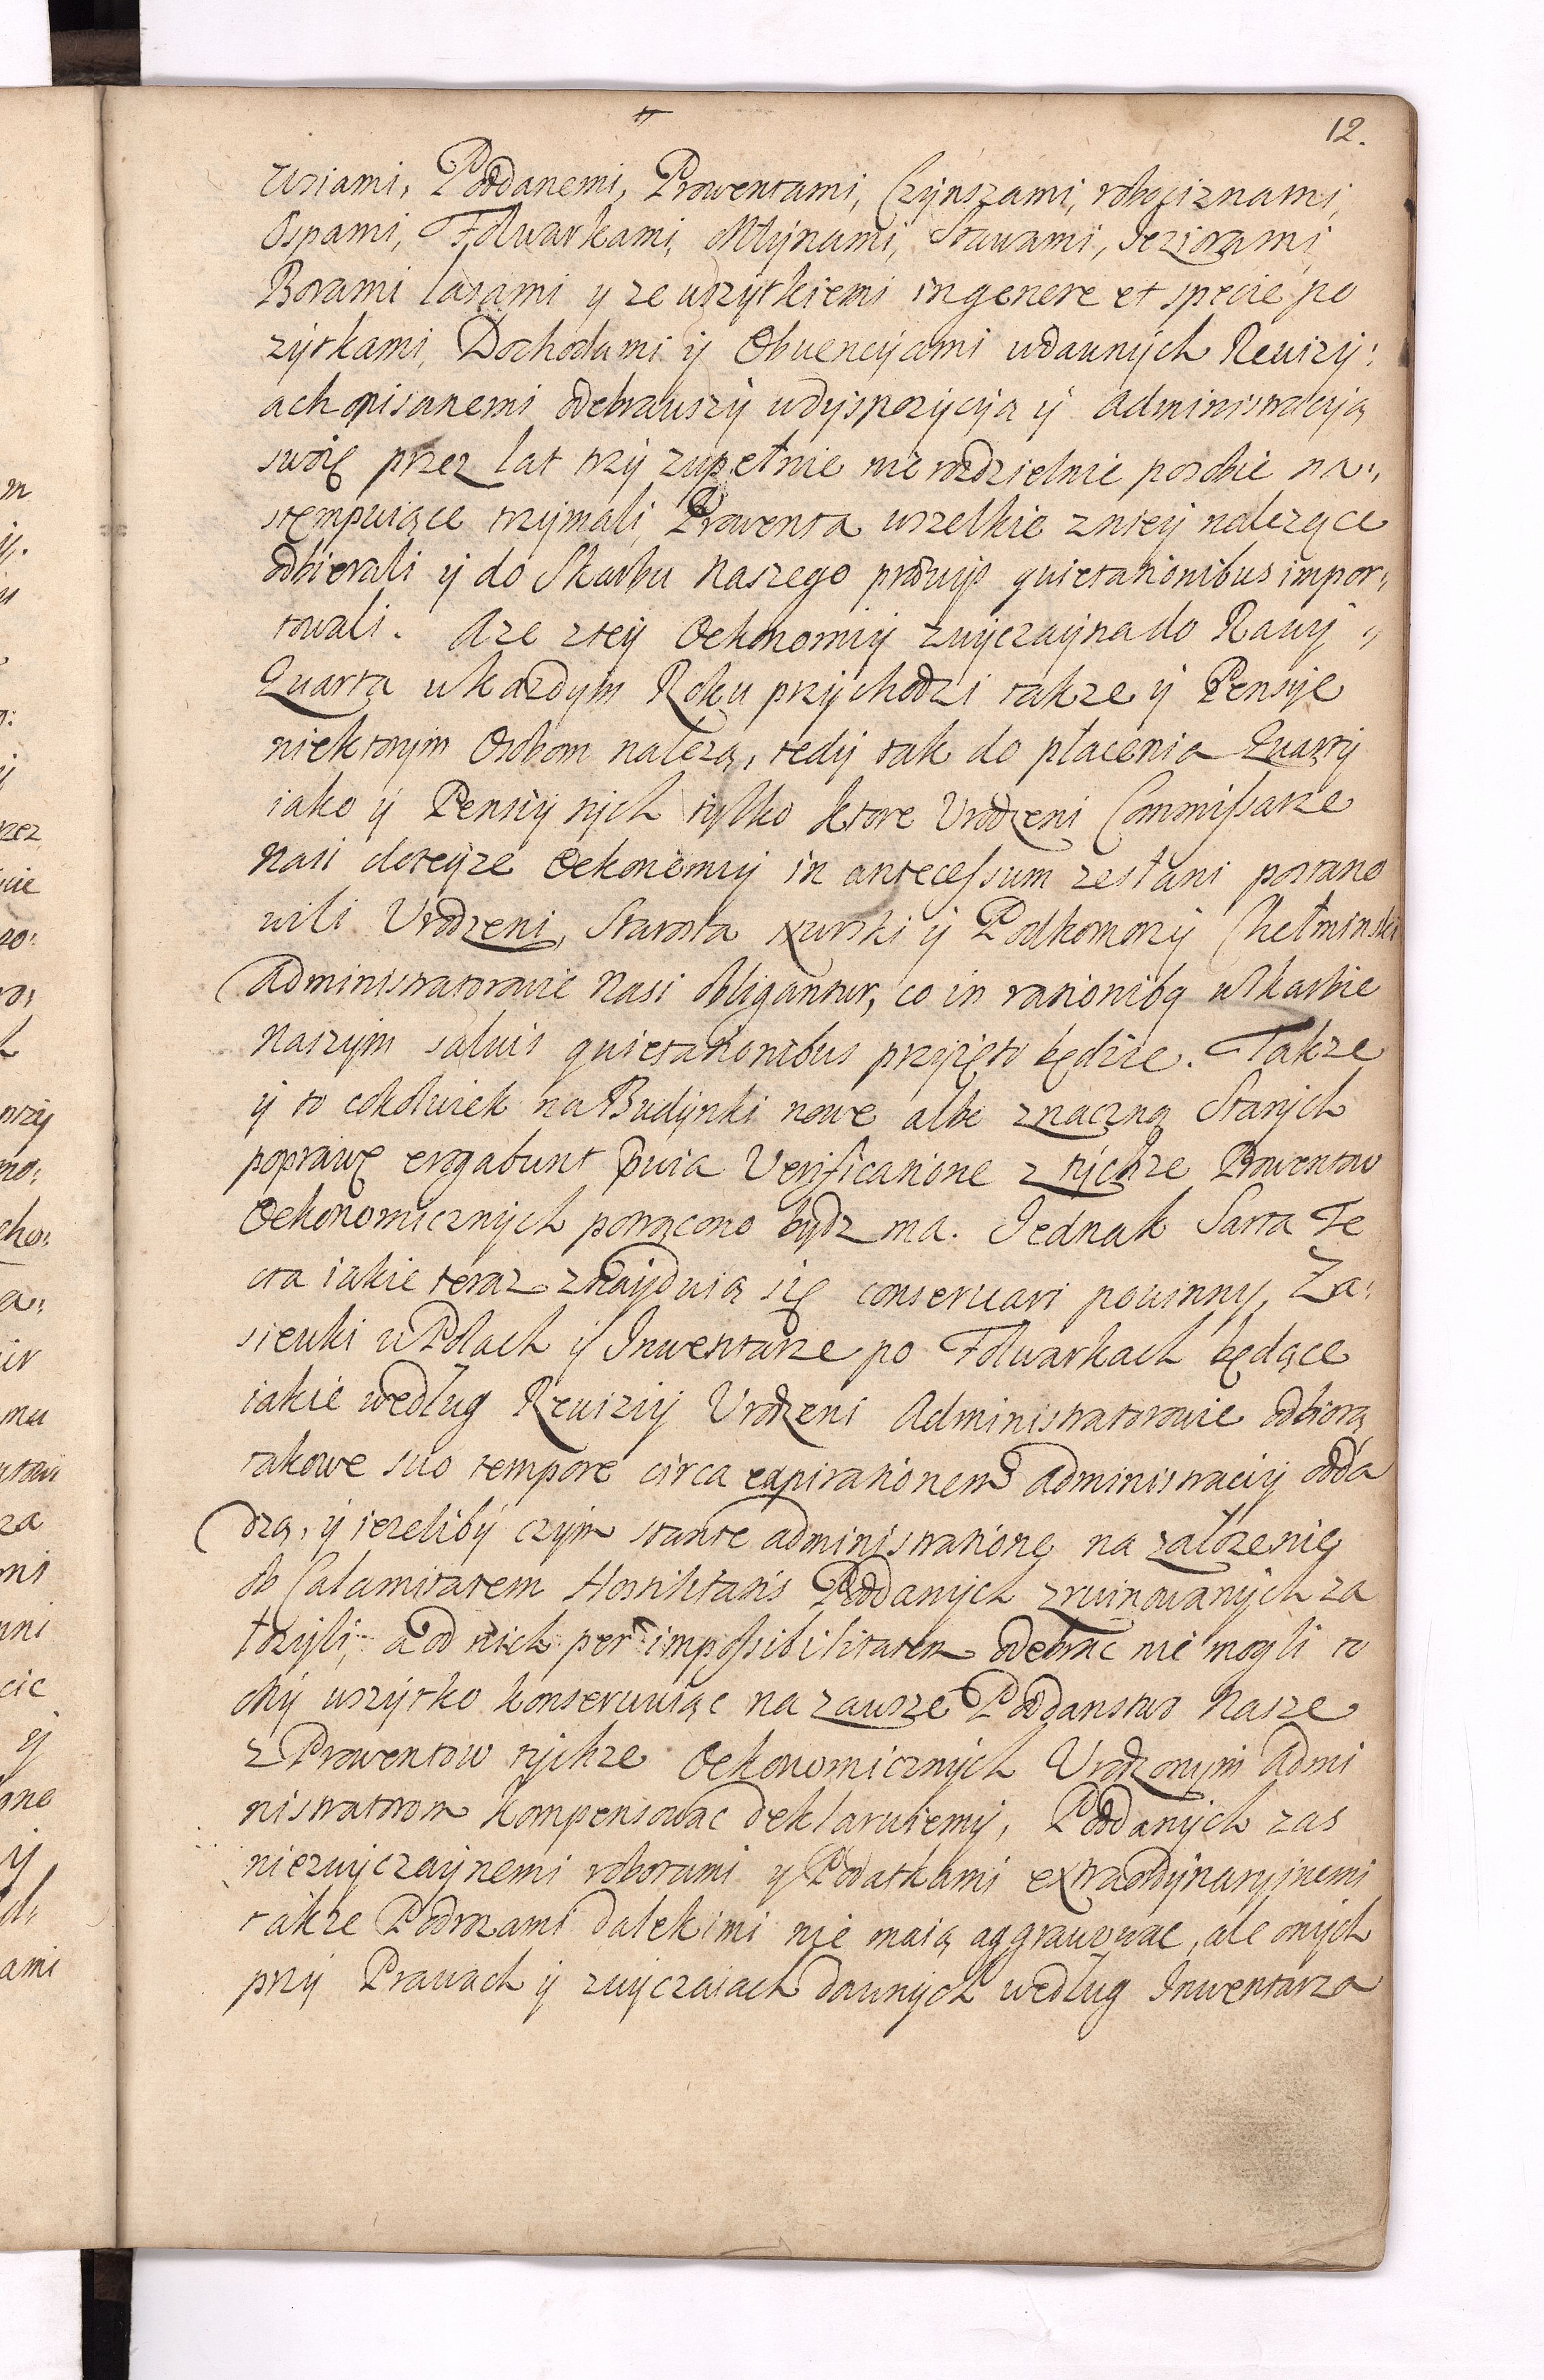 12.
wsiami, Poddanemi, Prowentami, Czynszami, robociznami,
Ospami, Folwarkami, Młynami, Stawami, Jeziorami,
Borami lasami y ze wszytkiemi in genere et specie po
zytkami, Dochodami y Obuencyami wdawnych Rewizy:
ach opisanemi odebrawszy wdyspozycyą y Administracyą
swoię przez lat trzy zupełnie nierozdzielnie posobie na:,
stempuiące trzymali, Prowenta wszelkie zniey nalezące
odbierali y do Skarbu Naszego quietationibus impor:,
towali. A ze ztey Oekonomiy zwyczayna do Rawy
Quarta wkazdym Roku przychodzi takze y Pensye
niektorym Osobom nalezą, tedy tak do płacenia Quarty
iako y Pensiy tych tylko ktore Urodzeni Commissarze
Nasi doteyze Oekonomiy in antecessum zesłani postano
wili Urodzeni, Starosta y Podkomorzy Chełminski
Administratorowie Nasi obligantur, co in rationibq wSkarbie
Naszym saluis quietationibus przyięto będzie. Takze
y to cokolwiek na Budynki nowe albo znaczną Starych
poprawę erogabunt pvia Verificatione z tychze Prowentow
Oekonomicznych potrącono bydz ma. Jednak Sarta Te
cta iakie teraz znayduią się conseruari powinny, Za:
siewki wPolach y Inwentarze po Folwarkach będące
iakie według Rewiziy Urodzeni Administratorowie odbiorą
takowe suo tempore circa expirationem Administraciy odda
dzą, y iezeliby czym stante administratione na załozenie
ob Calamitatem Hostilitatis Poddanych zruinowanych za
łozyli, a od nich per impossibilitatem odebrac nie mogli to
wszytko konserwuiąc na zawsze Poddanstwo Nasze
z Prowentow tychze Oekonomicznych Urodzonym Admi
nistratorom kompensowac deklaruiemy, Poddanych zas
niezwyczaynemi roborami y Podatkami extraordynaryinemi
takze Podrozami dalekimi nie maią aggrawowac, ale onych
przy Prawach y zwyczaiach dawnych według Inwentarza